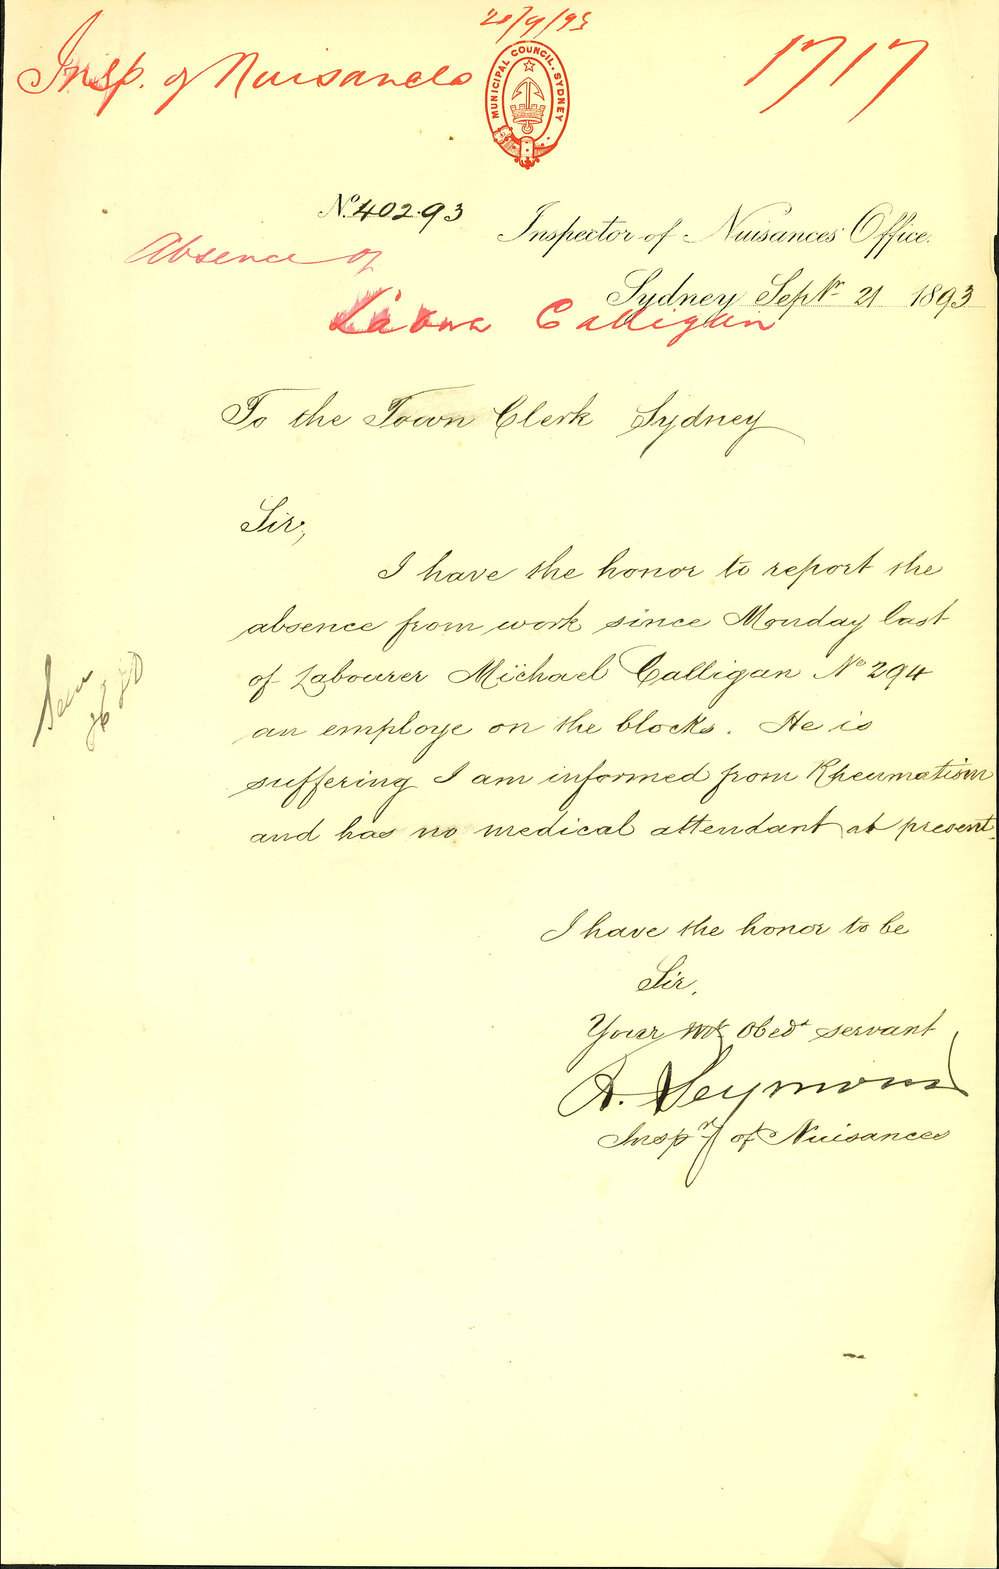 Insp. of Nuisances
MUNICIPAL COUNCIL. SYDNEY
1717
No. 402.93
Inspector of Nuisances Office.
Absence of
Sydney Septr 21 1893
Calligan
To the Town Clerk Sydney
Sir,
I have the honor to report the
absence from work since Monday last
of Labourer Michael Calligan No 294
an employe on the blocks. He is
suffering I am informed from Rheumatism
and has no medical attendant at present.
Seen
I have the honor to be
Sir,
Your mt Obedt servant
A. Seymour
Inspr of Nuisances